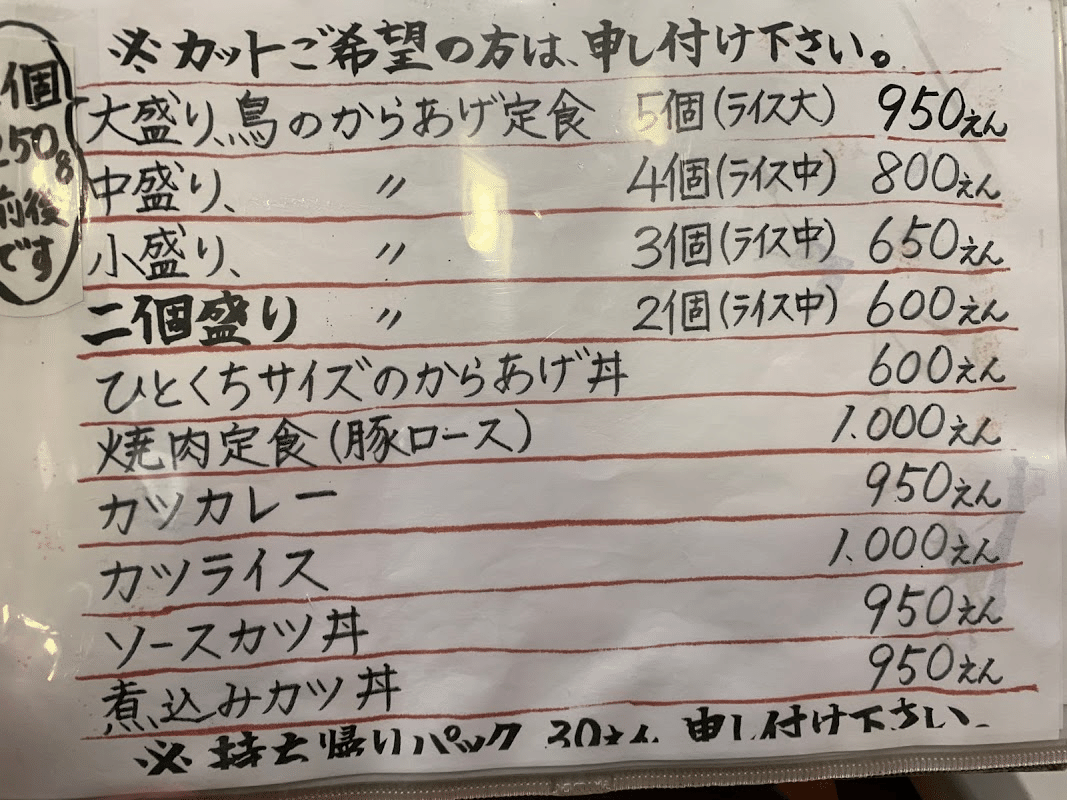 ※カットご希望の方は、申し付け下さい。
個
250g
前後
です
大盛り、鳥のからあげ定食 5個(ライス大) 950えん
中盛り、 〃 4個(ライス中) 800えん
小盛り、 〃 3個(ライス中) 650えん
二個盛り 〃 2個(ライス中) 600えん
ひとくちサイズのからあげ丼 600えん
焼肉定食(豚ロース) 1.000えん
カツカレー 950えん
カツライス 1.000えん
ソースカツ丼 950えん
煮込みカツ丼 950えん
※持ち帰りパック 30えん 申し付け下さい。